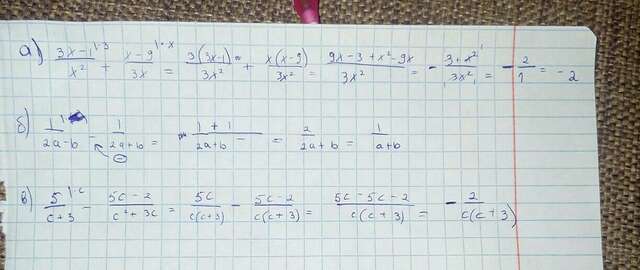 а) 3x-1/x² + x-9/3x = 3(3x-1)/3x² + x(x-9)/3x² = 9x-3+x²-9x/3x² = - 3+x²/3x² = - 2/1 = -2
б) 1/2a-b - 1/2a+b = 1+1/2a+b - = 2/2a+b = 1/a+b
в) 5/c+3 - 5c-2/c²+3c = 5c/c(c+3) - 5c-2/c(c+3) = 5c-5c-2/c(c+3) = - 2/c(c+3)